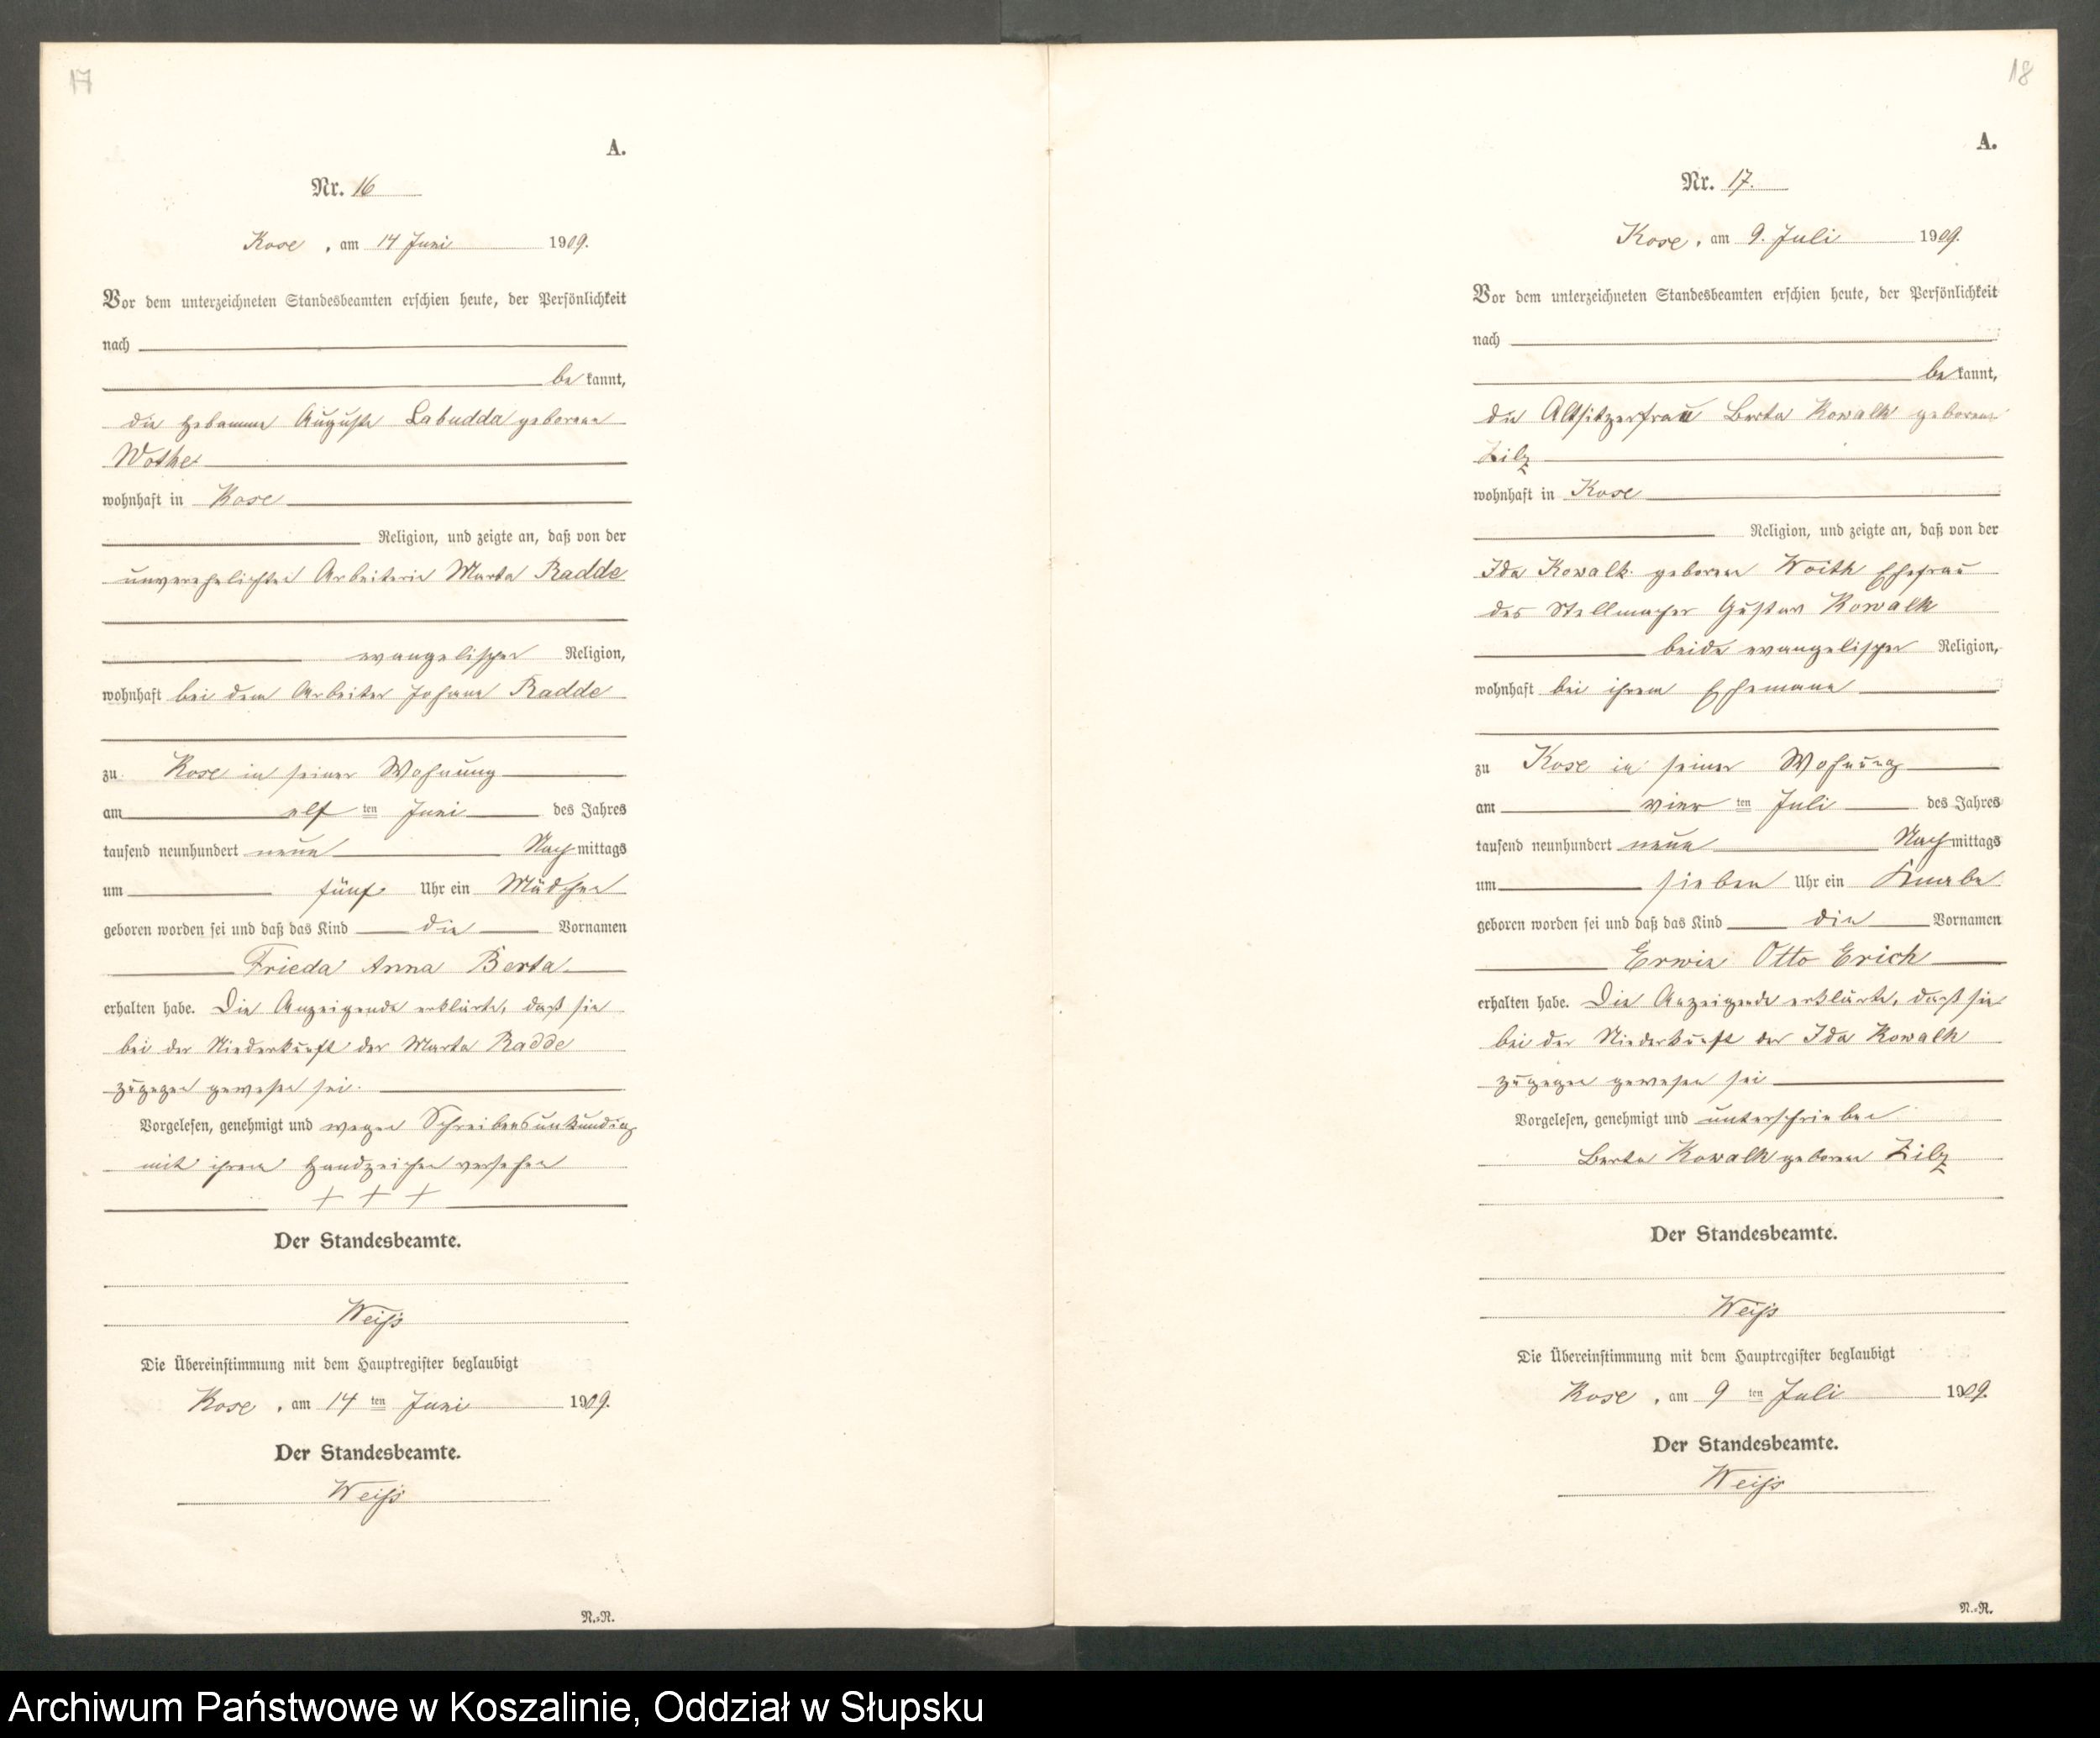 17
A.
Nr. 16
Kose, am 14 Juni 1909.
Vor dem unterzeichneten Standesbeamten erschien heute, der Persönlichkeit
nach
be kannt,
die Hebamme Auguste Labudda geborene
Wothe
wohnhaft in Kose
Religion, und zeigte an, daß von der
unverehelichten Arbeiterin Marta Radde
evangelischer Religion,
wohnhaft bei dem Arbeiter Johann Radde
zu Kose in seiner Wohnung
am elf ten Juni des Jahres
tausend neunhundert neun Nach mittags
um fünf Uhr ein Mädchen
geboren worden sei und daß das Kind die Vornamen
Frieda Anna Berta
erhalten habe. Die Anzeigende erklärte, daß sie
bei der Niederkunft der Marta Radde
zugegen gewesen sei.
Vorgelesen, genehmigt und wegen Schreibensunkundig
mit ihrem Handzeichen versehen
+ + +
Der Standesbeamte.
Weiß
Die Übereinstimmung mit dem Hauptregister beglaubigt
Kose, am 14 ten Juni 1909.
Der Standesbeamte.
Weiß
N.=R.
18
A.
Nr. 17.
Kose, am 9. Juli 1909.
Vor dem unterzeichneten Standesbeamten erschien heute, der Persönlichkeit
nach
be kannt,
die Altsitzerfrau Berta Kowalk geborene
Zilz
wohnhaft in Kose
Religion, und zeigte an, daß von der
Ida Kowalk geborene Woith Ehefrau
des Stellmacher Gustav Kowalk
beide evangelischer Religion,
wohnhaft bei ihrem Ehemann
zu Kose in seiner Wohnung
am vier ten Juli des Jahres
tausend neunhundert neun Nach mittags
um sieben Uhr ein Knabe
geboren worden sei und daß das Kind die Vornamen
Erwin Otto Erich
erhalten habe. Die Anzeigende erklärte, daß sie
bei der Niederkunft der Ida Kowalk
zugegen gewesen sei
Vorgelesen, genehmigt und unterschrieben
Berta Kowalk geborene Zilz
Der Standesbeamte.
Weiß
Die Übereinstimmung mit dem Hauptregister beglaubigt
Kose, am 9 ten Juli 1909.
Der Standesbeamte.
Weiß
N.=R.
Archiwum Państwowe w Koszalinie, Oddział w Słupsku